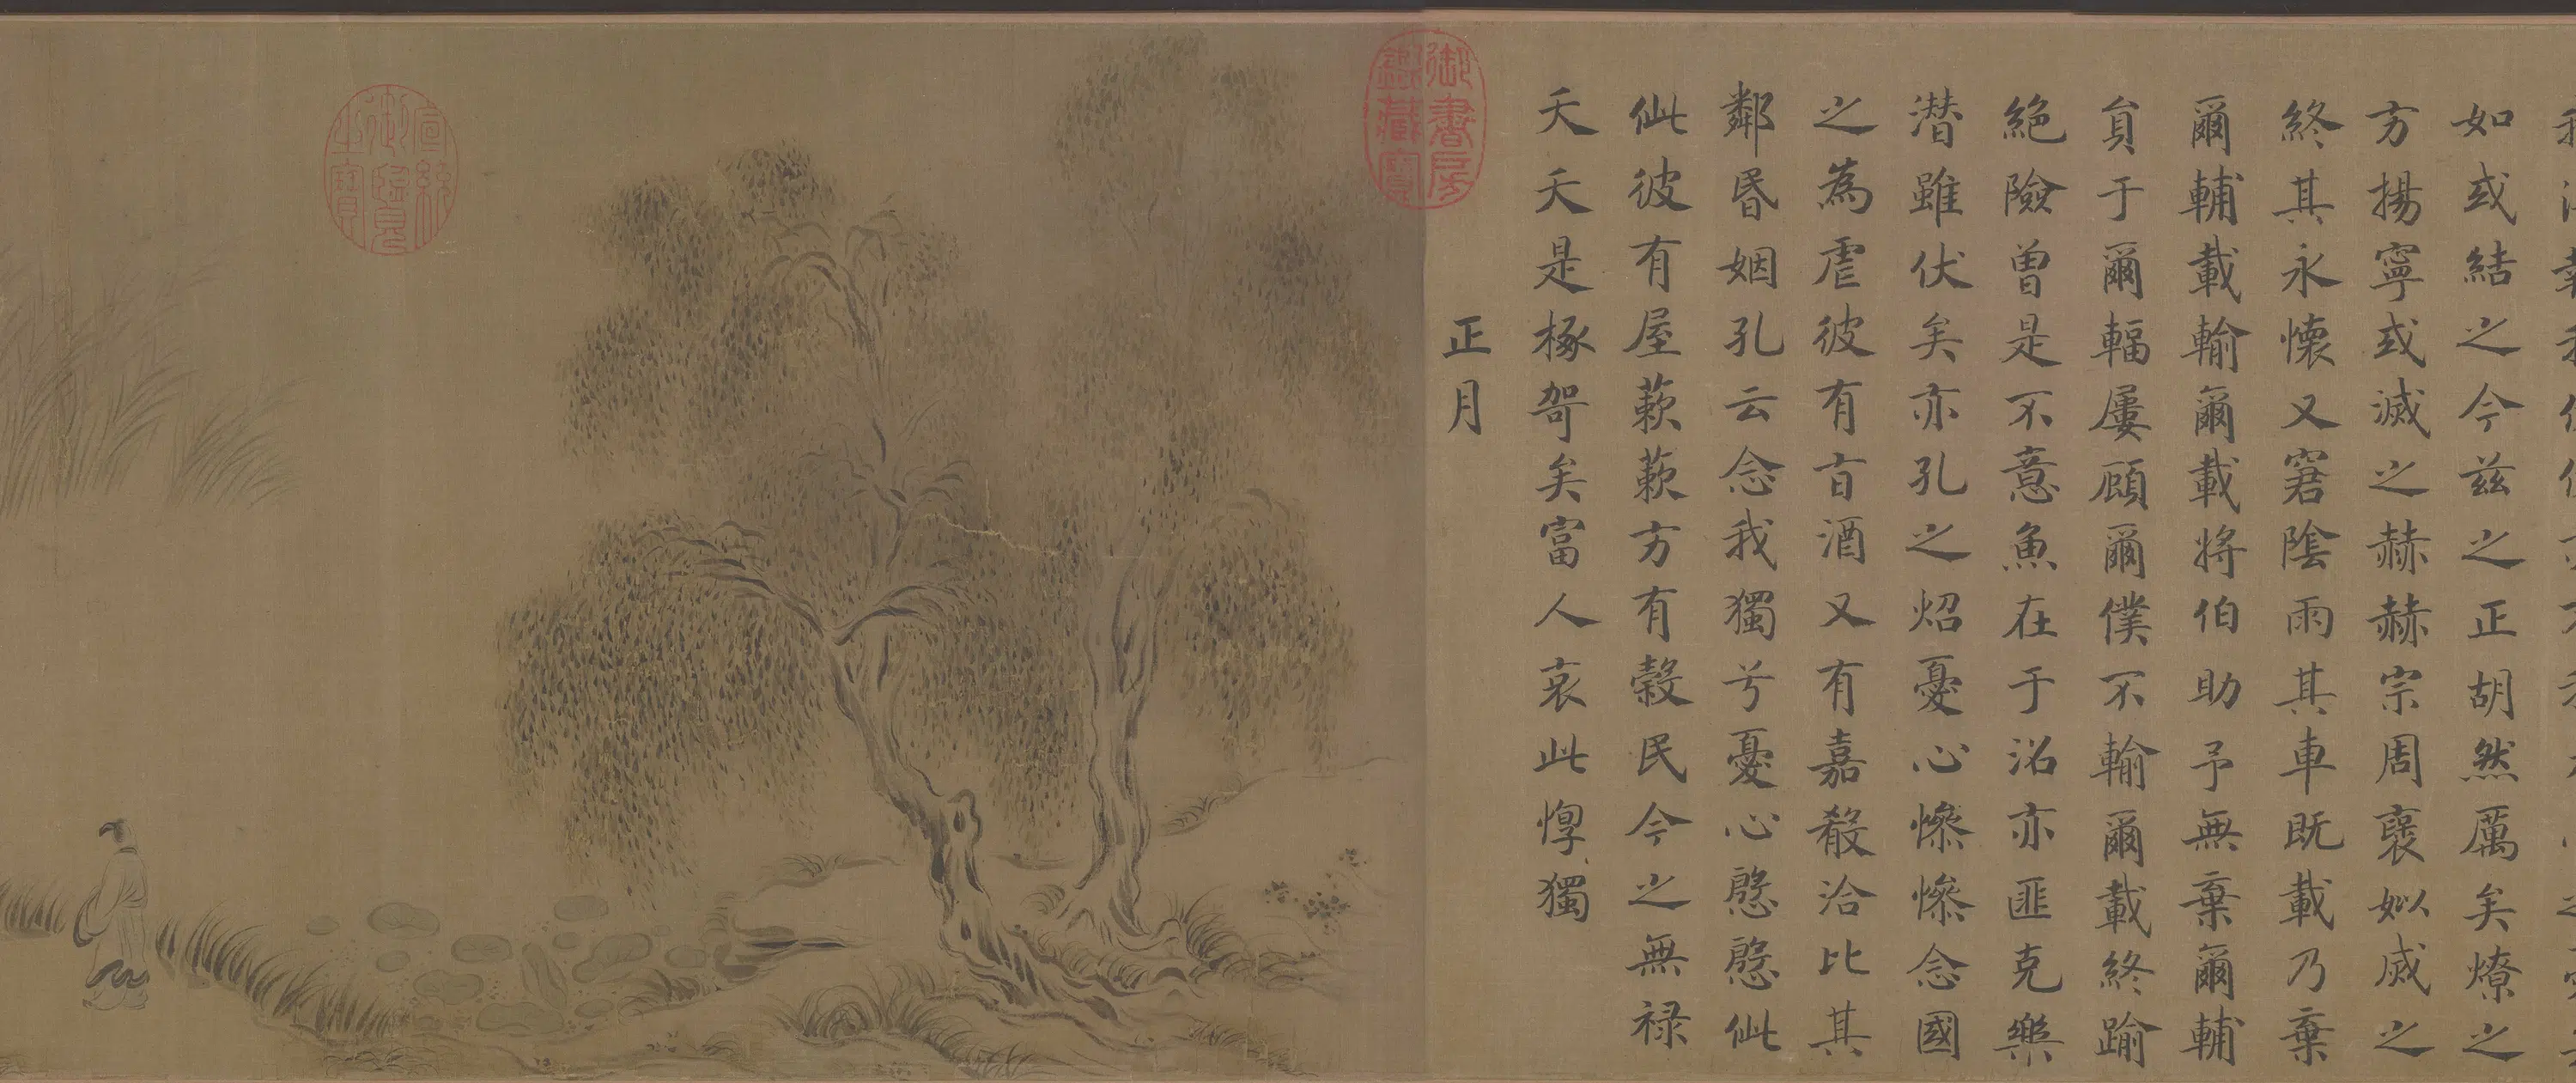 如或結之今茲之正胡然厲矣燎之
方揚寧或滅之赫赫宗周褒姒烕之
終其永懷又窘陰雨其車既載乃棄
爾輔載輸爾載將伯助予無棄爾輔
員于爾輻屢顧爾僕不輸爾載終踰
絶險曾是不意魚在于沼亦匪克樂
潜雖伏矣亦孔之炤憂心慘慘念國
之為虐彼有旨酒又有嘉殽洽比其
鄰昏姻孔云念我獨兮憂心慇慇佌
佌彼有屋蔌蔌方有穀民今之無禄
夭夭是椓哿矣富人哀此惸獨
正月
御書房
鑑藏寶
宣統
御覽
之寶